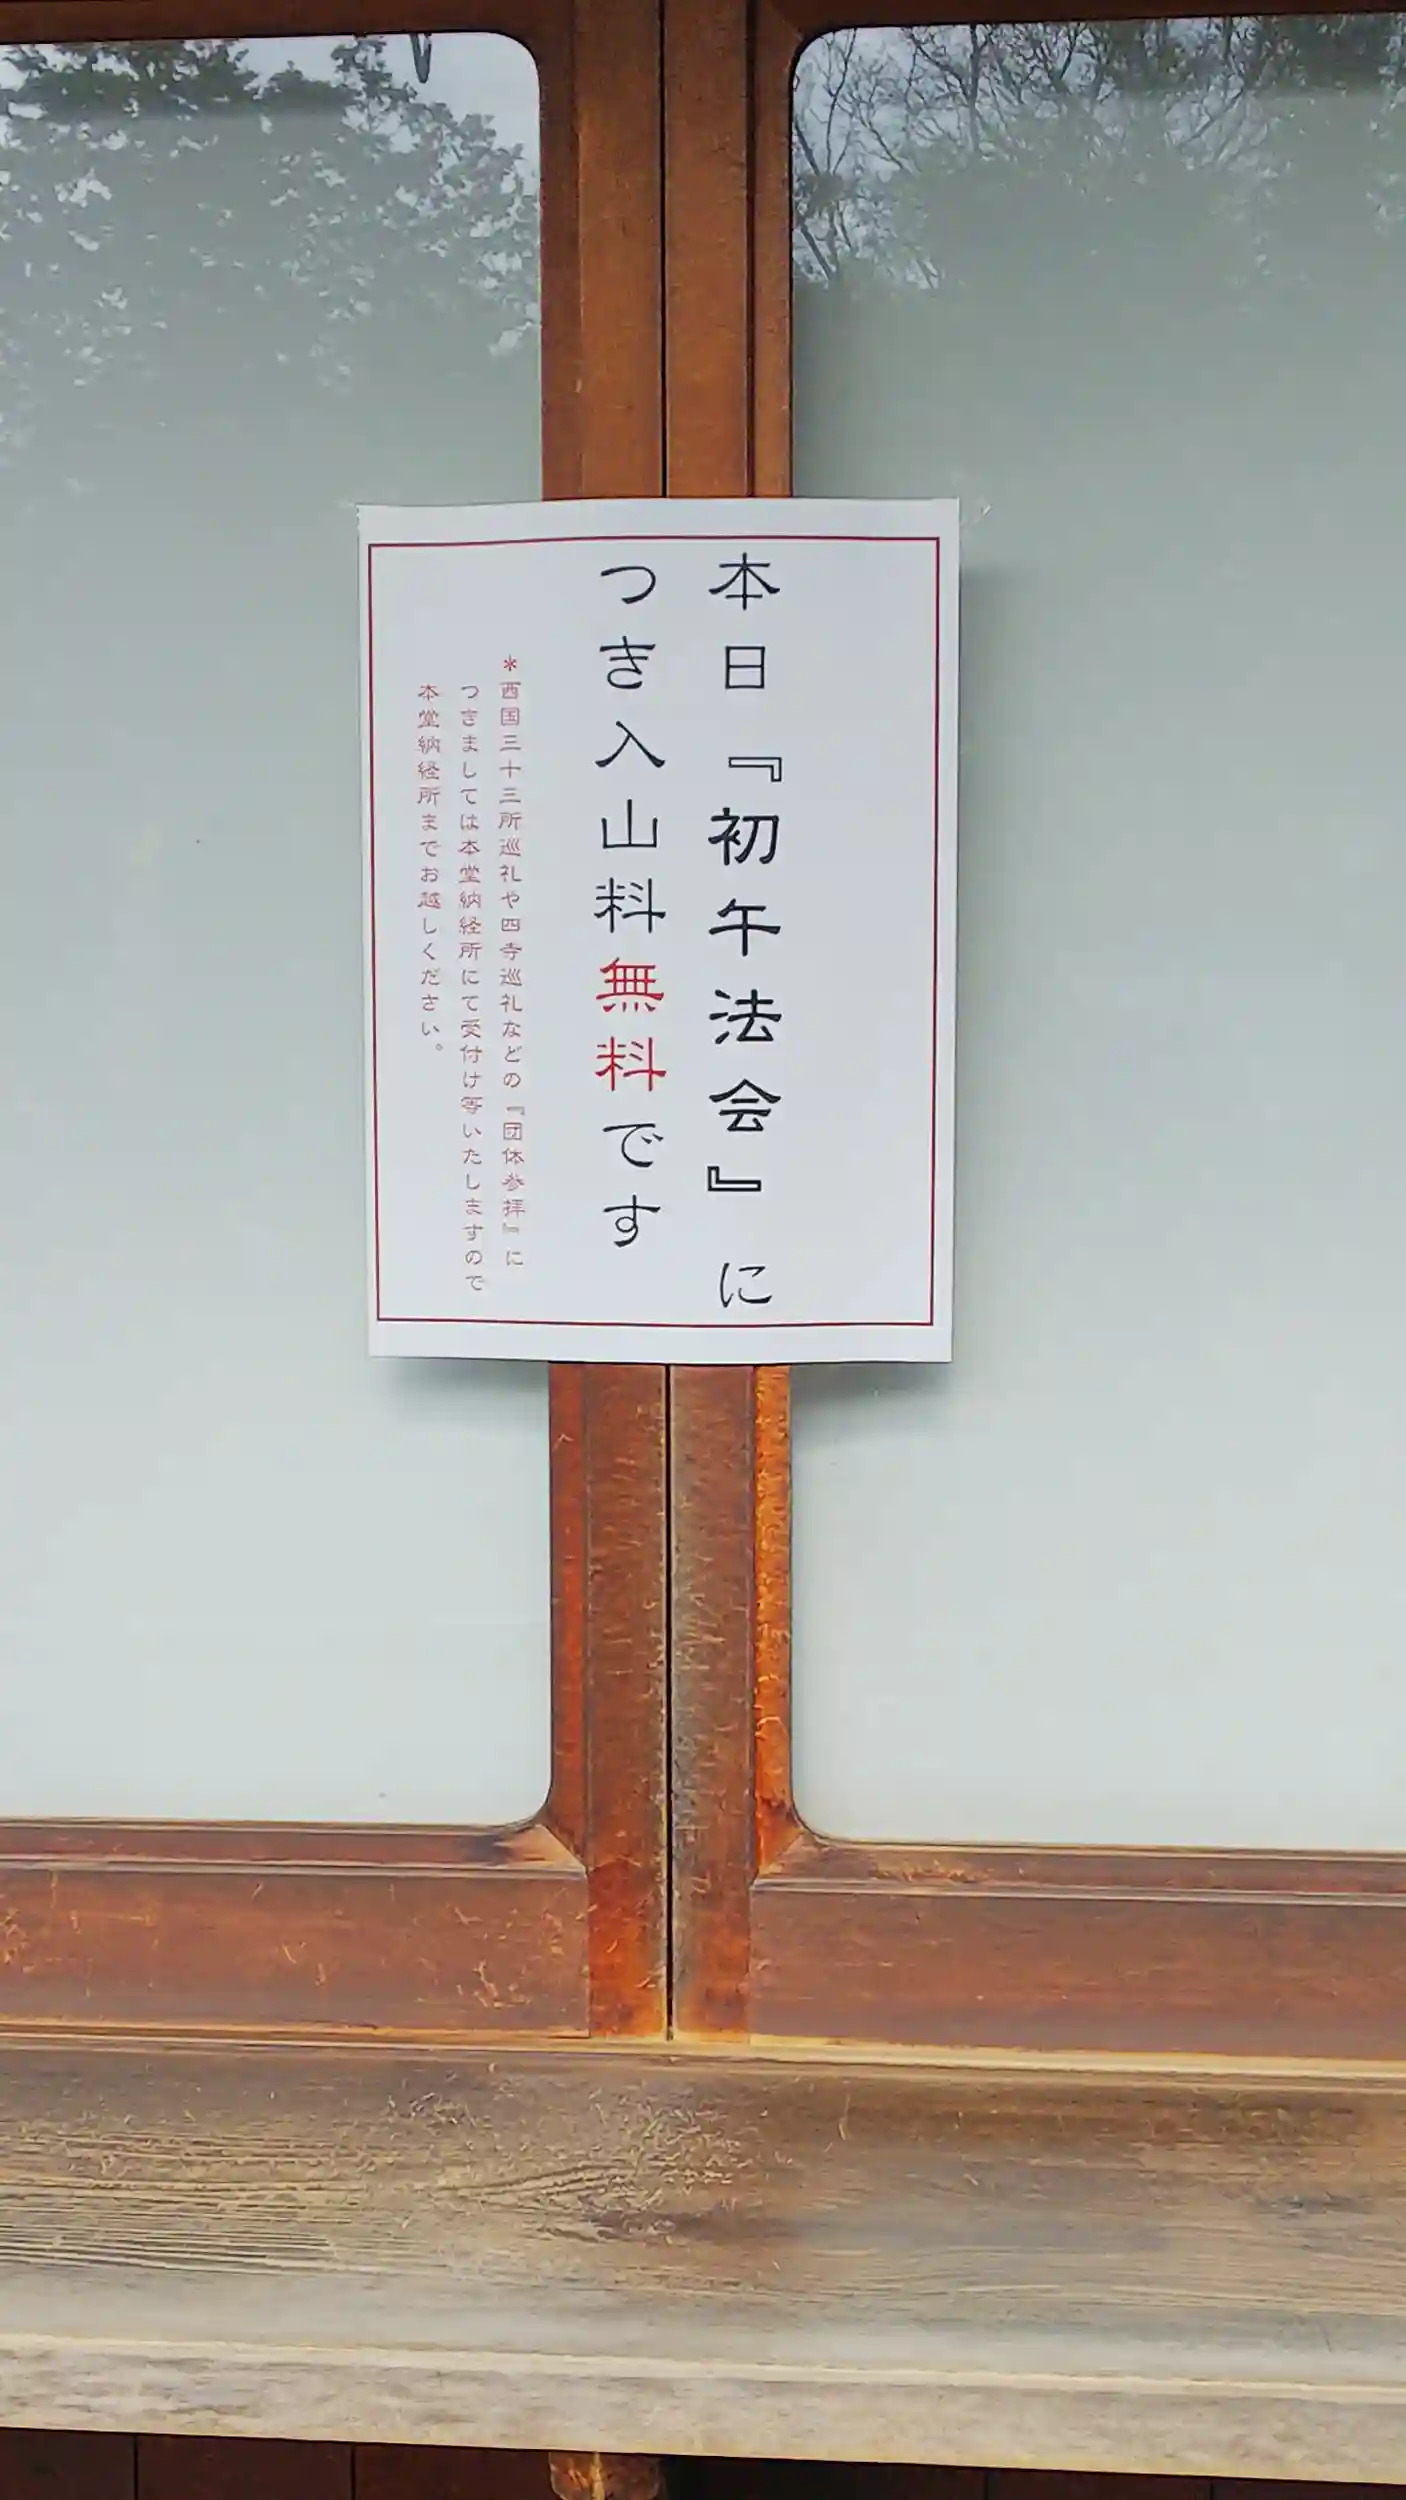 本日『初午法会』に
つき入山料無料です
＊西国三十三所巡礼や四寺巡礼などの『団体参拝』に
つきましては本堂納経所にて受付け等いたしますので
本堂納経所までお越しください。